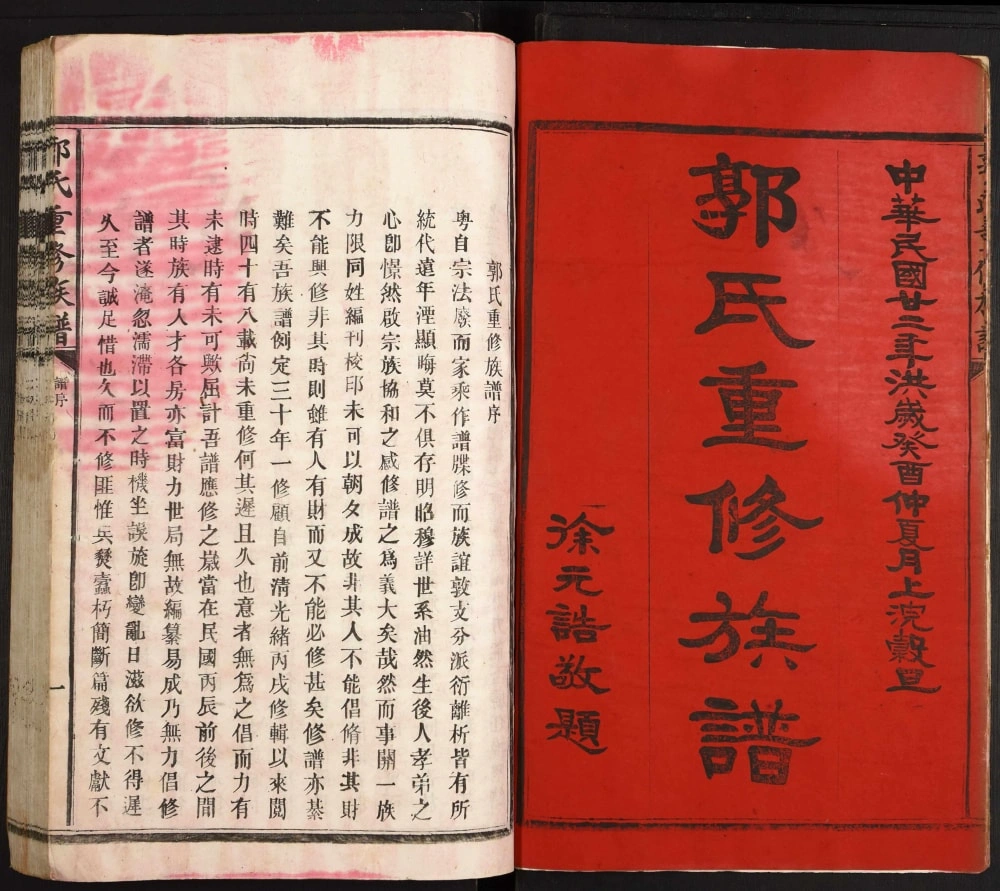 中華民國廿二年洪歲癸酉仲夏月上浣穀旦
郭氏重修族譜
徐元誥敬題
郭氏重修族譜序
粵自宗法廢而家乘作譜牒修而族誼敦支分派衍離析皆有所
統代遠年湮顯晦莫不俱存明昭穆詳世系油然生後人孝弟之
心卽憬然啟宗族協和之感修譜之爲義大矣哉然而事關一族
力限同姓編刊校印未可以朝夕成故非其人不能倡脩非其財
不能興修非其時則雖有人有財而又不能必修甚矣修譜亦綦
難矣吾族譜例定三十年一修顧自前清光緒丙戌修輯以來閱
時四十有八載尙未重修何其遲且久也意者無爲之倡而力有
未逮時有未可歟屈計吾譜應修之歲當在民國丙辰前後之間
其時族有人才各房亦富財力世局無故編纂易成乃無力倡修
譜者遂淹忽濡滯以置之時機坐誤旋卽變亂日滋欲修不得遲
久至今誠足惜也久而不修匪惟兵燹蠹朽簡斷篇殘有文獻不
郭氏重修族譜
譜序
一